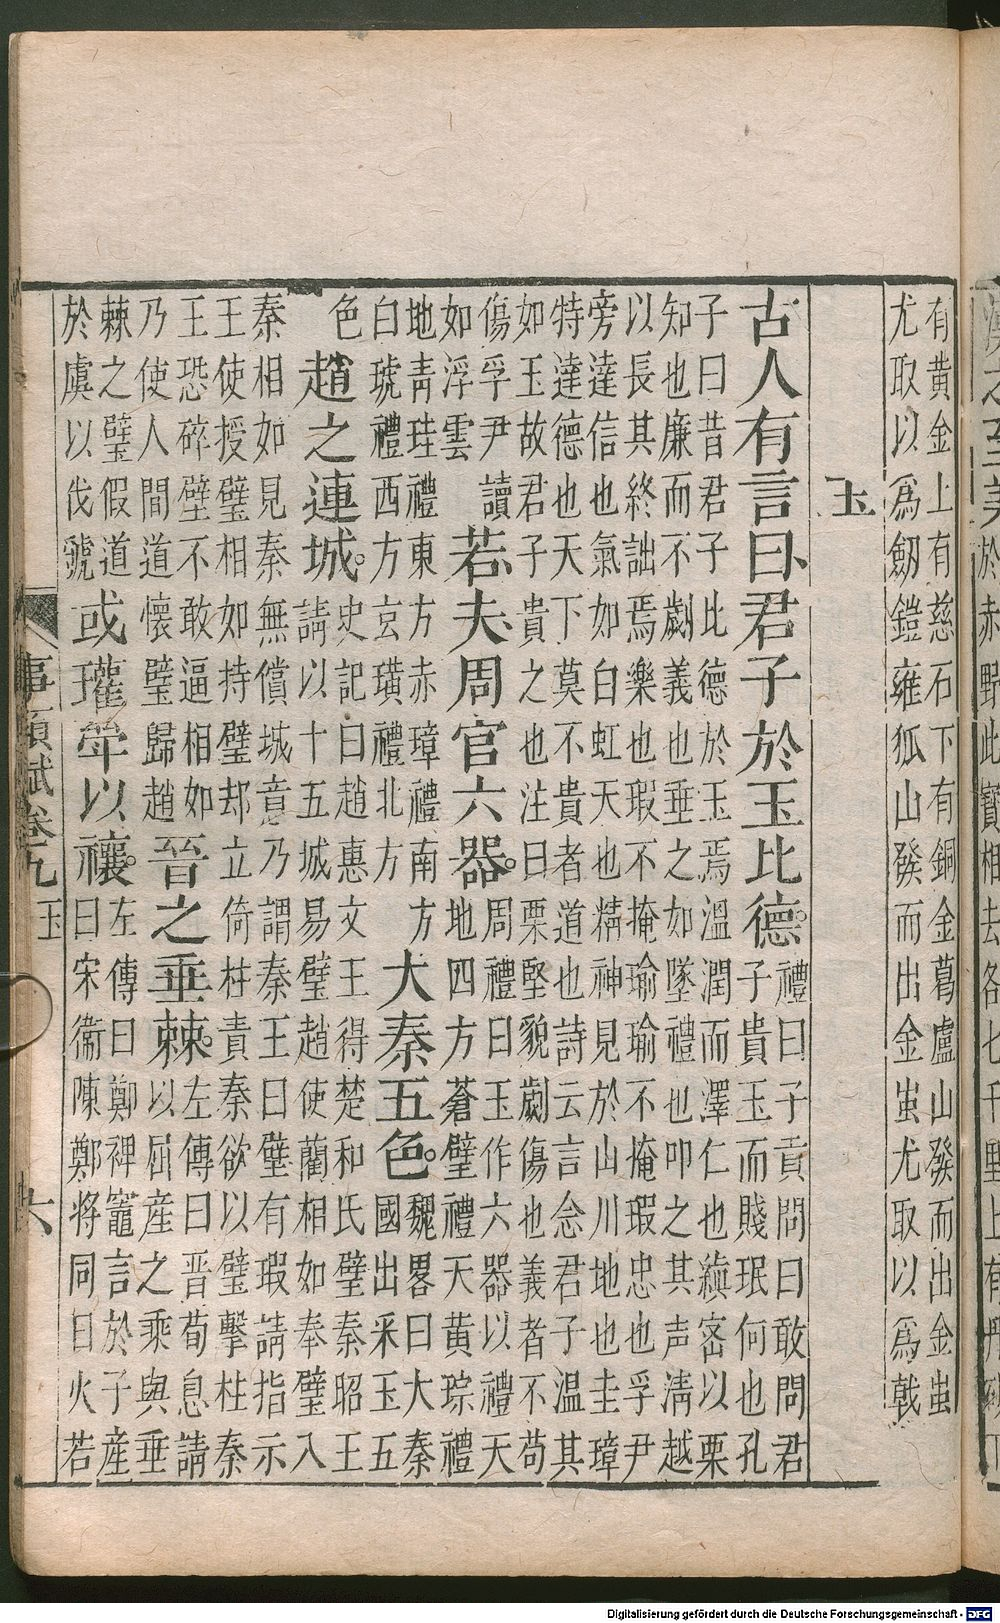 有黃金上有慈石下有銅金葛盧山發而出金蚩
尤取以爲劒鎧雍狐山發而出金蚩尤取以爲戟
玉
古人有言曰君子於玉比德
禮曰子貢問曰敢問君
子貴玉而賤珉何也孔
子曰昔君子比德於玉焉溫潤而澤仁也縝密以栗
知也廉而不劌義也垂之如墜禮也叩之其声清越
以長其終詘焉樂也瑕不掩瑜瑜不掩瑕忠也孚尹
旁達信也氣如白虹天也精神見於山川地也圭璋
特達德也天下莫不貴者道也詩云言念君子溫其
如玉故君子貴之也注曰栗堅貌劌傷也義者不苟
傷孚尹讀
如浮雲
若夫周官六器
周禮曰玉作六器以禮天
地四方蒼璧禮天黃琮禮
地青珪禮東方赤璋禮南方
白琥禮西方玄璜禮北方
大秦五色
魏畧曰大秦
國出采玉五
色
趙之連城
史記曰趙惠文王得楚和氏璧秦昭王
請以十五城易璧趙使藺相如奉璧入
秦相如見秦無償城意乃謂秦王曰璧有瑕請指示
王使授璧相如持璧却立倚柱責秦欲以璧擊柱秦
王恐碎璧不敢逼相如
乃使人間道懷璧歸趙
晉之垂棘
左傳曰晉荀息請
以屈産之乘與垂
棘之璧假道
於虞以伐虢
或瓘斝以禳
左傳曰鄭裨竈言於子産
曰宋衞陳鄭將同日火若
事類賦卷九 玉 六
Digitalisierung gefördert durch die Deutsche Forschungsgemeinschaft - DFG